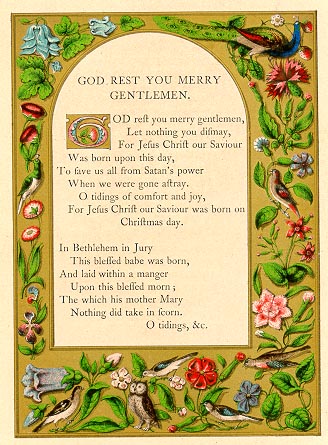 GOD REST YOU MERRY
GENTLEMEN.
GOD reſt you merry gentlemen,
Let nothing you diſmay,
For Jeſus Chriſt our Saviour
Was born upon this day,
To ſave us all from Satan's power
When we were gone aſtray.
O tidings of comfort and joy,
For Jeſus Chriſt our Saviour was born on
Chriſtmas day.
In Bethlehem in Jury
This bleſſed babe was born,
And laid within a manger
Upon this bleſſed morn;
The which his mother Mary
Nothing did take in ſcorn.
O tidings, &c.